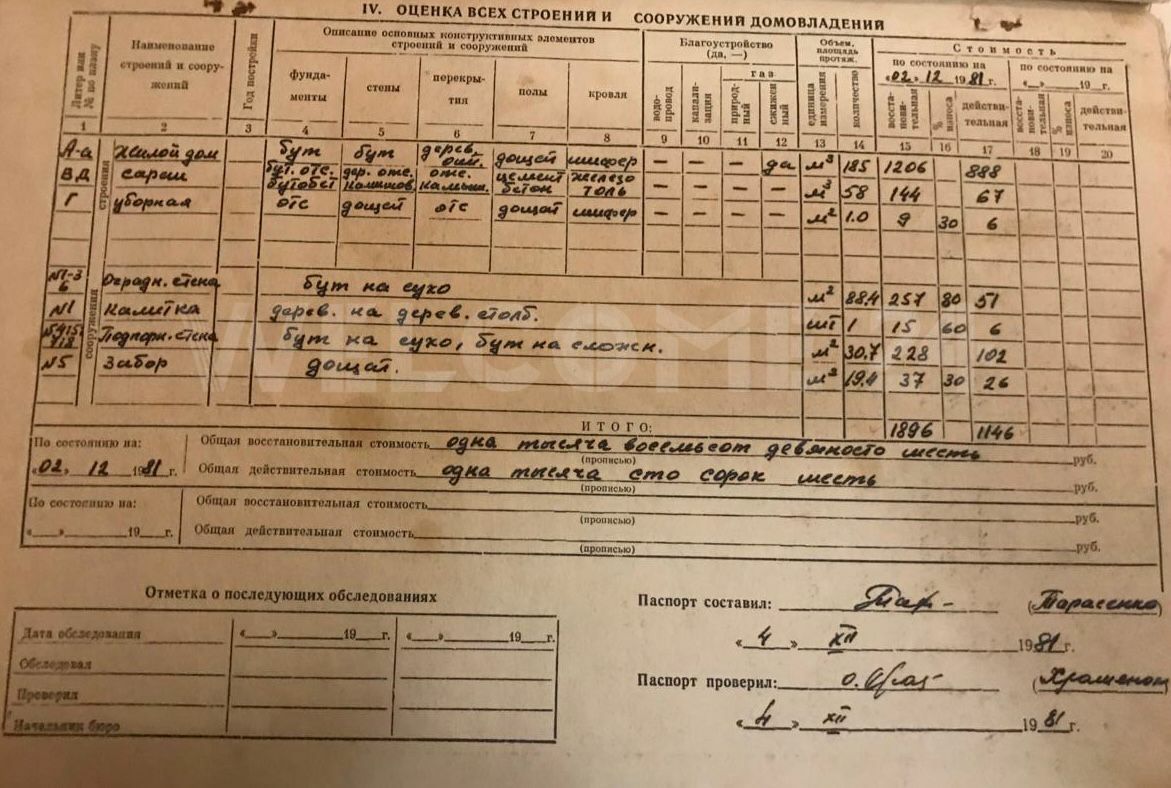 IV. ОЦЕНКА ВСЕХ СТРОЕНИЙ И СООРУЖЕНИЙ ДОМОВЛАДЕНИЙ
Литер или № по плану
Наименование строений и сооружений
Год постройки
Описание основных конструктивных элементов строений и сооружений
Благоустройство (да, —)
Объем, площадь протяж.
Стоимость
фундаменты
стены
перекрытия
полы
кровля
водопровод
канализация
газ
природный
сжиженный
единица измерения
количество
по состоянию на «02» 12 1981 г.
по состоянию на «__»____19__г.
восстановительная
% износа
действительная
восстановительная
% износа
действительная
1 2 3 4 5 6 7 8 9 10 11 12 13 14 15 16 17 18 19 20
строения
А-а Жилой дом бут бут дерев. дощат шифер — — — да м³ 185 1206 888
ВД сараи бут. отс. дер. отс. отс. цемент железо
бутобет камышов. камыш. бетон толь — — — — м³ 58 144 67
Г уборная отс дощат отс дощат шифер — — — — м² 1.0 9 30 6
сооружения
№1-3 6 Оградн. стена бут на сухо м² 88.4 257 80 51
№1 Калитка дерев. на дерев. столб. шт 1 15 60 6
Подпорн. стена бут на сухо, бут на сложн. м² 30.7 228 102
№5 Забор дощат. м² 19.4 37 30 26
WELCOME
ИТОГО: 1896 1146
По состоянию на: «02» 12 1981 г.
Общая восстановительная стоимость одна тысяча восемьсот девяносто шесть руб.
(прописью)
Общая действительная стоимость одна тысяча сто сорок шесть руб.
(прописью)
По состоянию на: «__»____19__г.
Общая восстановительная стоимость руб.
(прописью)
Общая действительная стоимость руб.
(прописью)
Отметка о последующих обследованиях
Дата обследования «__»____19__г. «__»____19__г.
Обследовал
Проверил
Начальник бюро
Паспорт составил: Тар- (Тарасенко)
«4» XII 1981 г.
Паспорт проверил:
«4» XII 1981 г.